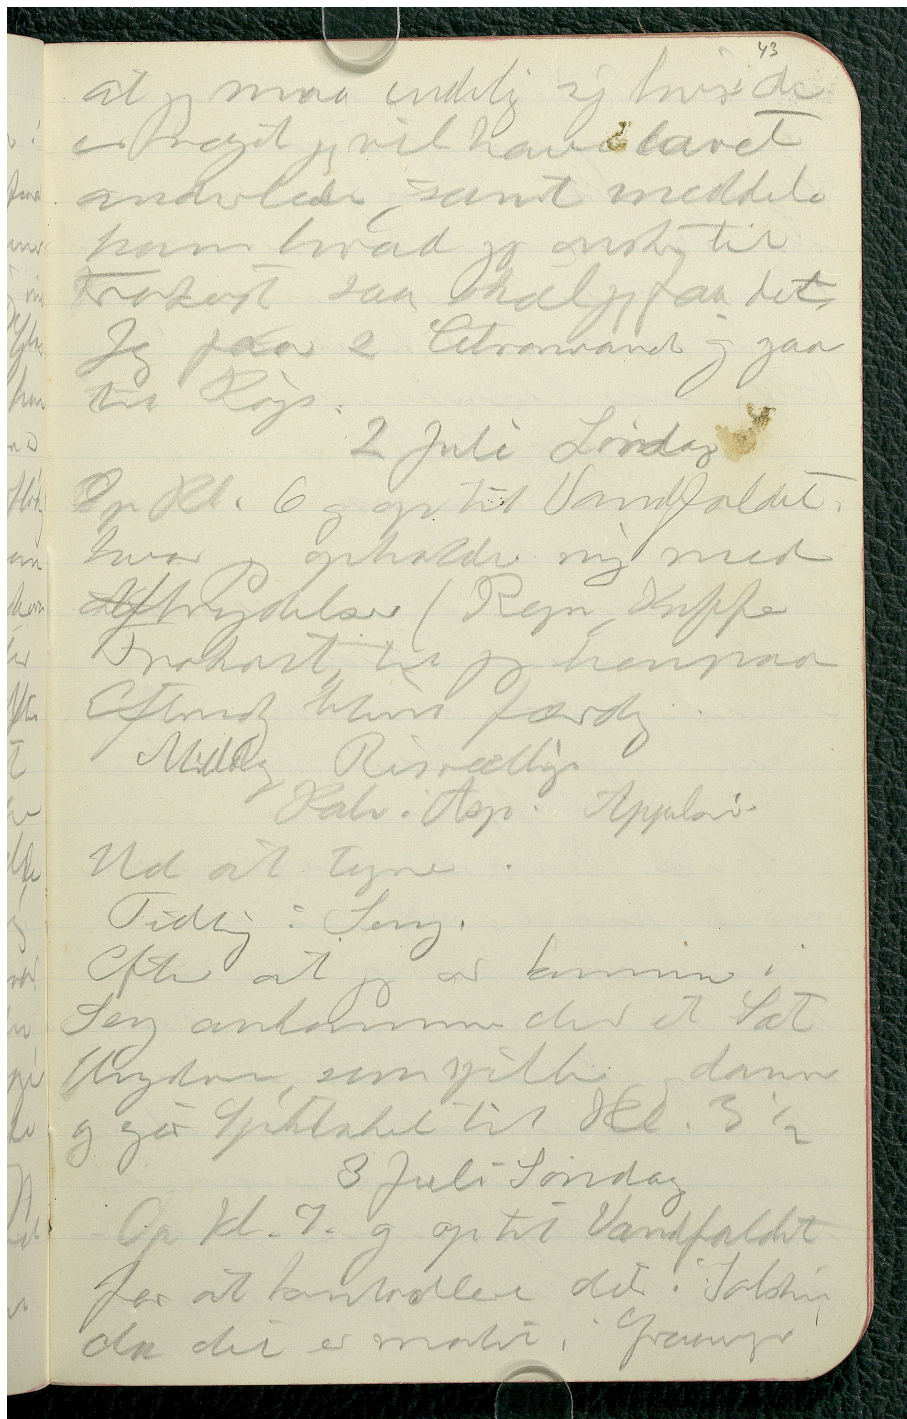 43
at jg maa endelig sig hvis de
er Noget jg vil have lavet
anderledes, samt meddele
ham hvad jg ønsker til
Frokost saa skal jg faa det.
Jeg faar 2 Citronvand og gaar
til Køjs.
2 Juli Søndag
Op Kl. 6 og op til Vandfaldet,
hvor jg opholder mig med
Afbrydelser (Regn, Kaffe
Frokost, til jg henpaa
Eftermidg bliver færdig.
Middag Risvælling
Kalv i Asp. Appelsin
Ud at tegne.
Tidlig i Seng.
Efter at jg er kommen i
Seng ankommer der et Sæt
Ungdom, som spille, danse
og gør Spektakel til Kl. 3½
3 Juli Søndag
Op Kl. 7. og op til Vandfaldet
for at kontrollere det i Solskin,
da det er malet i Graavejr,